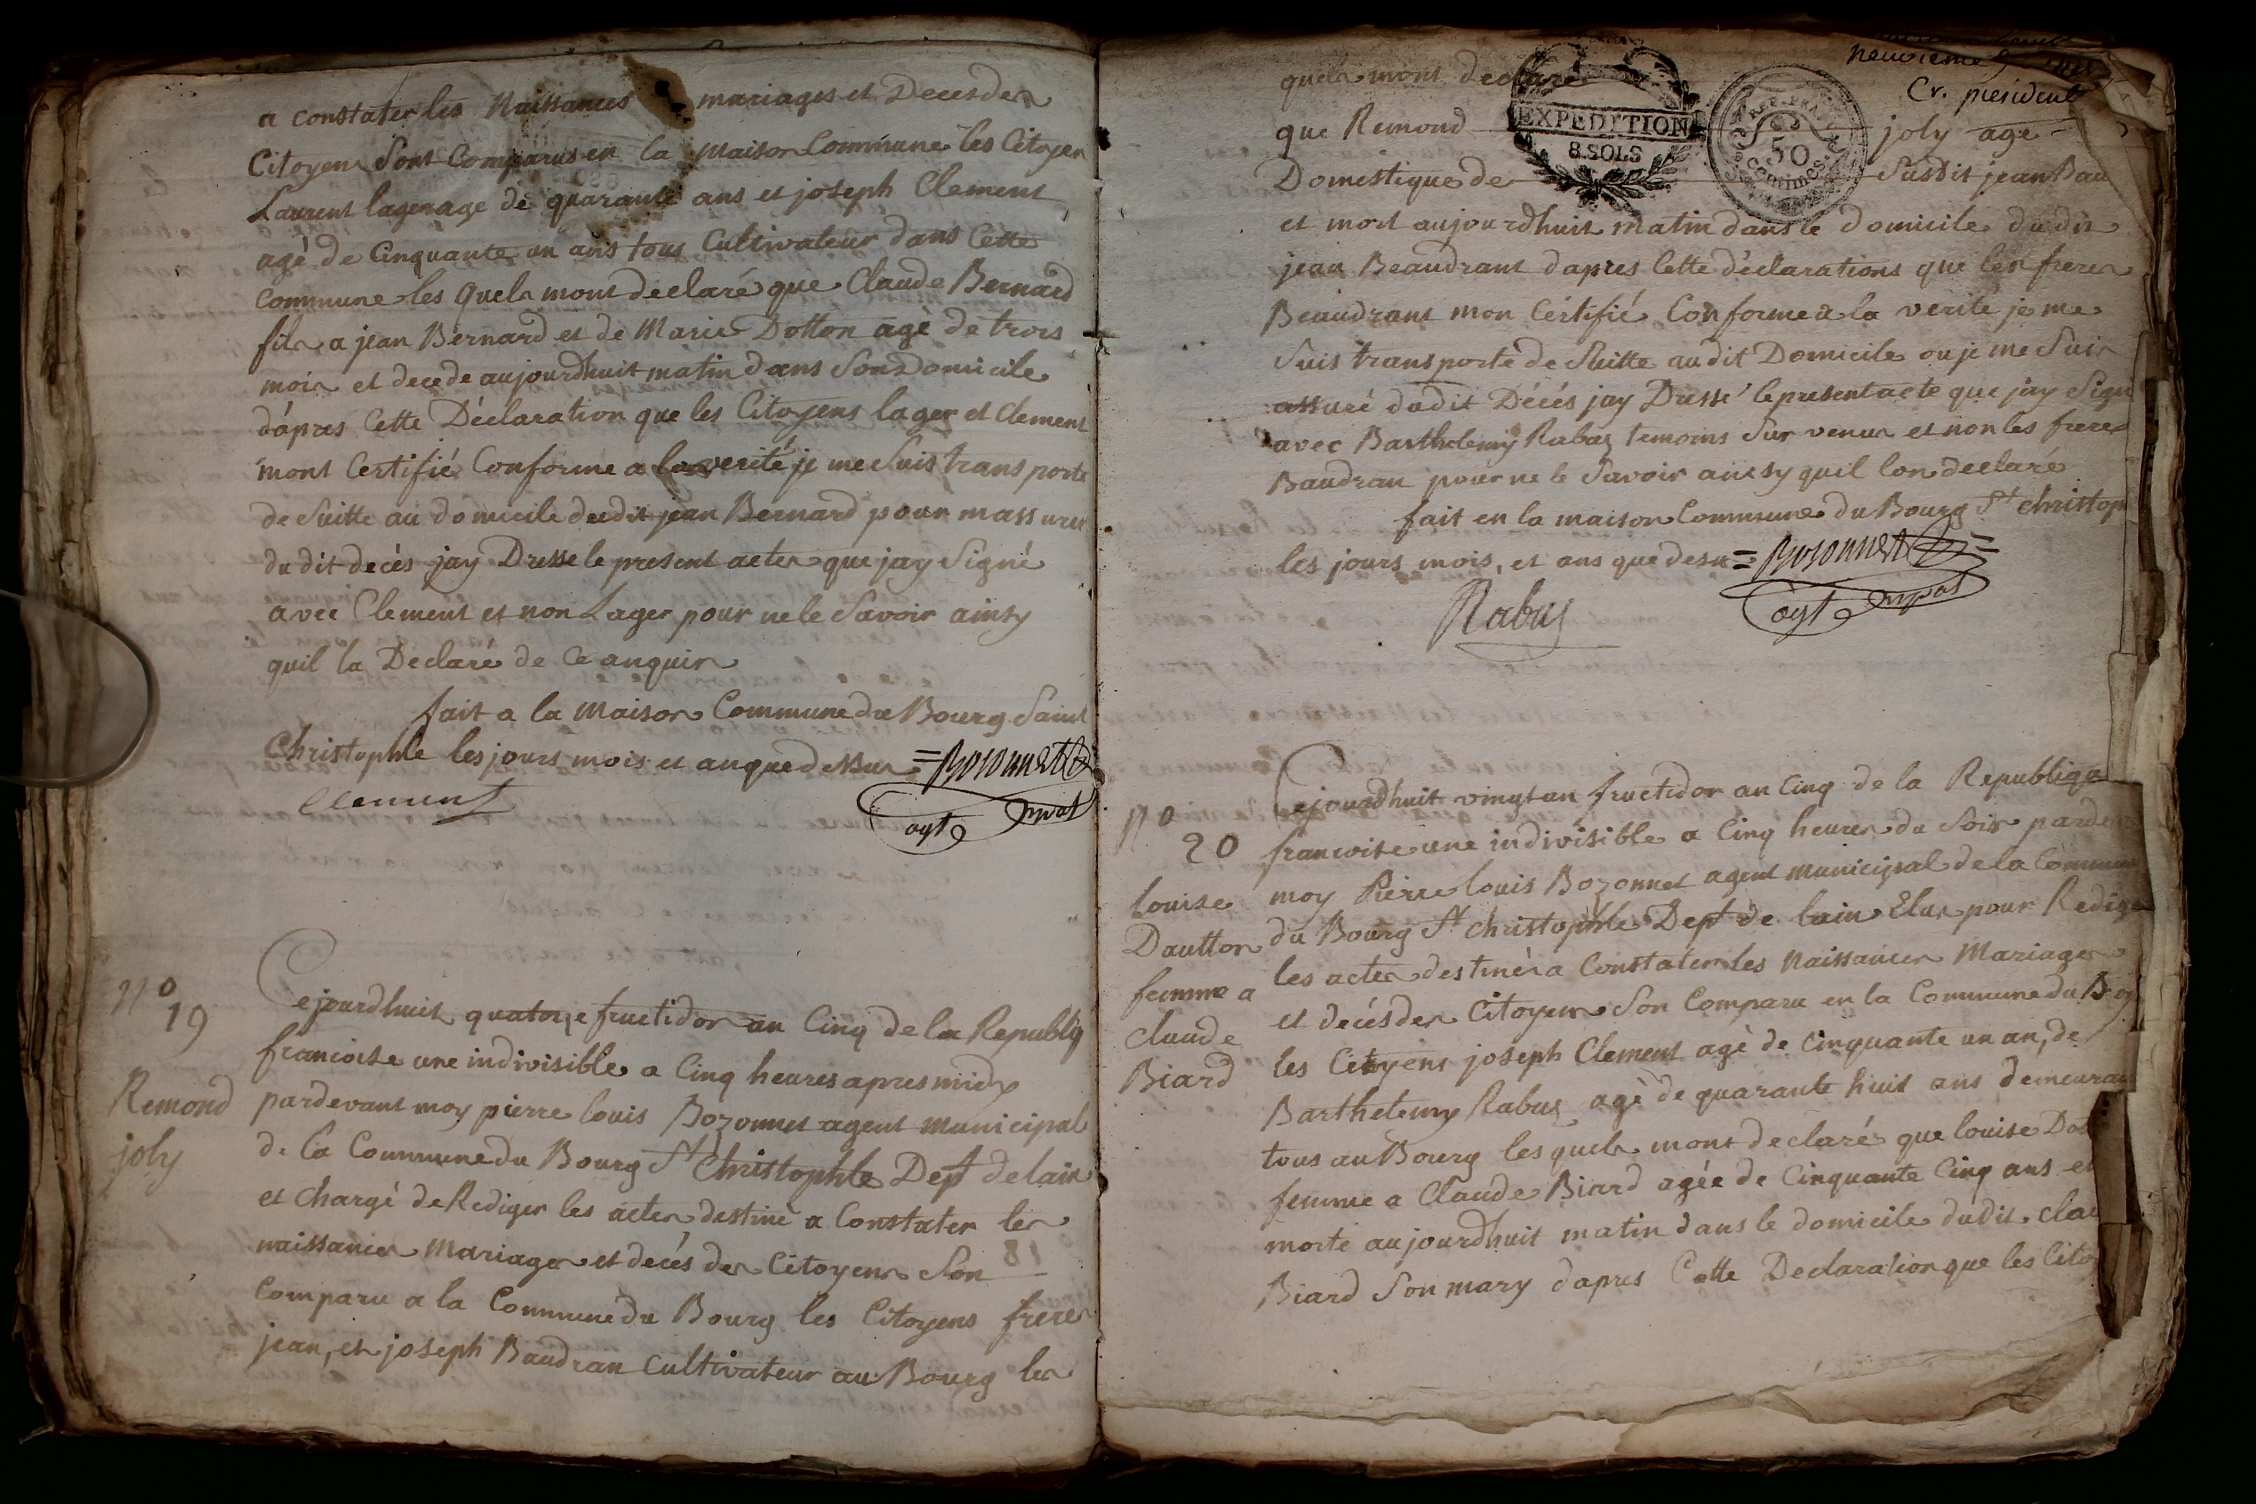 a constater les Naissances mariages et Deces des
Citoyens Sont Comparus en la Maison Commune les Citoyen
Laurent lager age de quarante ans et joseph Clement
agé de Cinquante un ans tous Cultivateur dans Cette
commune les Quels mont declaré que Claude Bernard
fils a jean Bernard et de Marie Dotton agé de trois
mois et decede aujourdhuit matin dans Son Domicile
dápres Cette Déclaration que les Citoyens lager et Clement
mont Certifié Conforme a la verité je me Suis trans porte
de Suitte au domicile dudit jean Bernard pour massurer
du dit decés jay Dresse le present actes que jay Signé
avec Clement et non Lager pour ne le Savoir ainsy
quil la Declaré de Ce anquis
fait a la Maison Commune du Bourg Saint
Christophle les jours mois et an que dessus = Bozonnet
Clement
agt mpal
No
19
Remond
joly
Cejourdhuit quatorze fructidor an Cinq de la Republiq
francoise une indivisible a Cinq heures apres midy
pardevant moy pierre louis Bozonnet agent municipal
de la Commune du Bourg St Christophle Dept de lain
et chargé de Rediger les actes destiné a Constater les
naissances Mariages et decés des Citoyens Son
18
Comparu a la Commune du Bourg les Citoyens freres
jean, et joseph Baudran cultivateur au Bourg les
neuvieme
Cr. president
quels mont declaré
EXPEDITION
8.SOLS
50
Centimes
que Remond joly age
Domestique de Susdit jean Bau
et mort aujourdhuit matin dans le domicile dudit
jean Beaudrant dapres Cette déclarations que les freres
Beaudrant mon Certifié Conforme a la verité je me
Suis transporte de Suitte audit Domicile ou je me Suis
assuré dudit Décés jay Dressé le present acte que jay Sign
avec Barthelemy Rabuz temoins Sur venus et non les freres
Baudran pour ne le Savoir ainsy quil lon declaré
fait en la maison Commune du Bourg St christop
les jours mois, et ans que desu = Bozonnet =
Rabuz
agt mpal
No
20
louise
Dautton
femme a
claude
Biard
Cejourdhuit vingt un fructidor an Cinq de la Republique
francoise une indivisible a Cinq heures du Soir parde
moy Pierre louis Bozonnet agent municipal de la Commun
du Bourg St christophle Dept de lain Elus pour Redige
les actes destiné a Constater les Naissances Mariages
et decés des Citoyens Son Comparu en la Commune du Bo
les Citoyens joseph Clement agé de Cinquante un an, de
Barthelemy Rabuz agé de quarante huit ans demeuran
tous au Bourg les quels mont declaré que louise Dot
femme a Claude Biard agée de Cinquante Cinq ans et
morte aujourdhuit matin dans le domicile dudit cla
Biard Son mary dapres Cette Declaration que les Cito